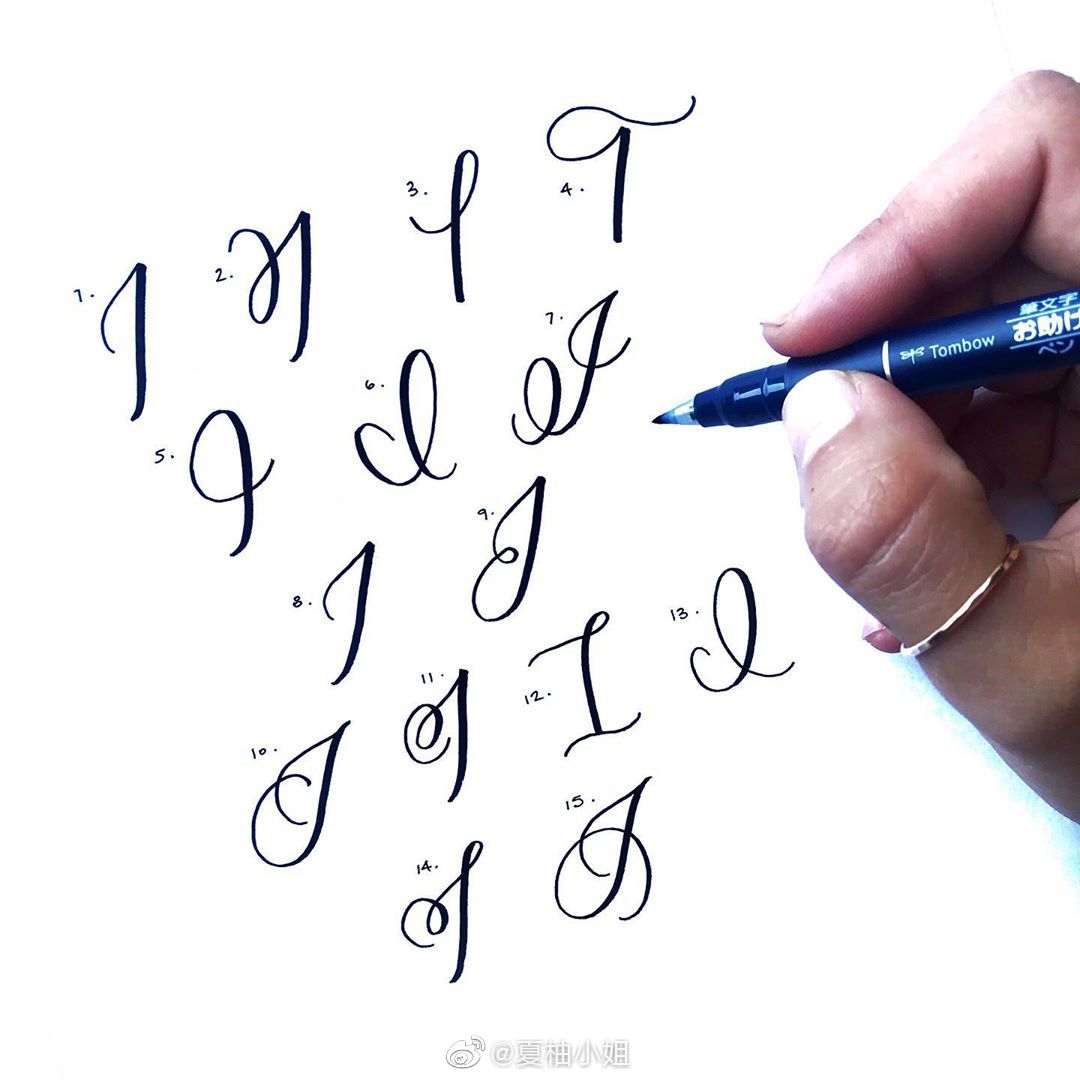 1. I
2. I
3. I
4. I
5. I
6. I
7. I
8. I
9. I
10. I
11. I
12. I
13. I
14. I
15. I
Tombow
筆文字
お助け
ペン
@夏柚小姐